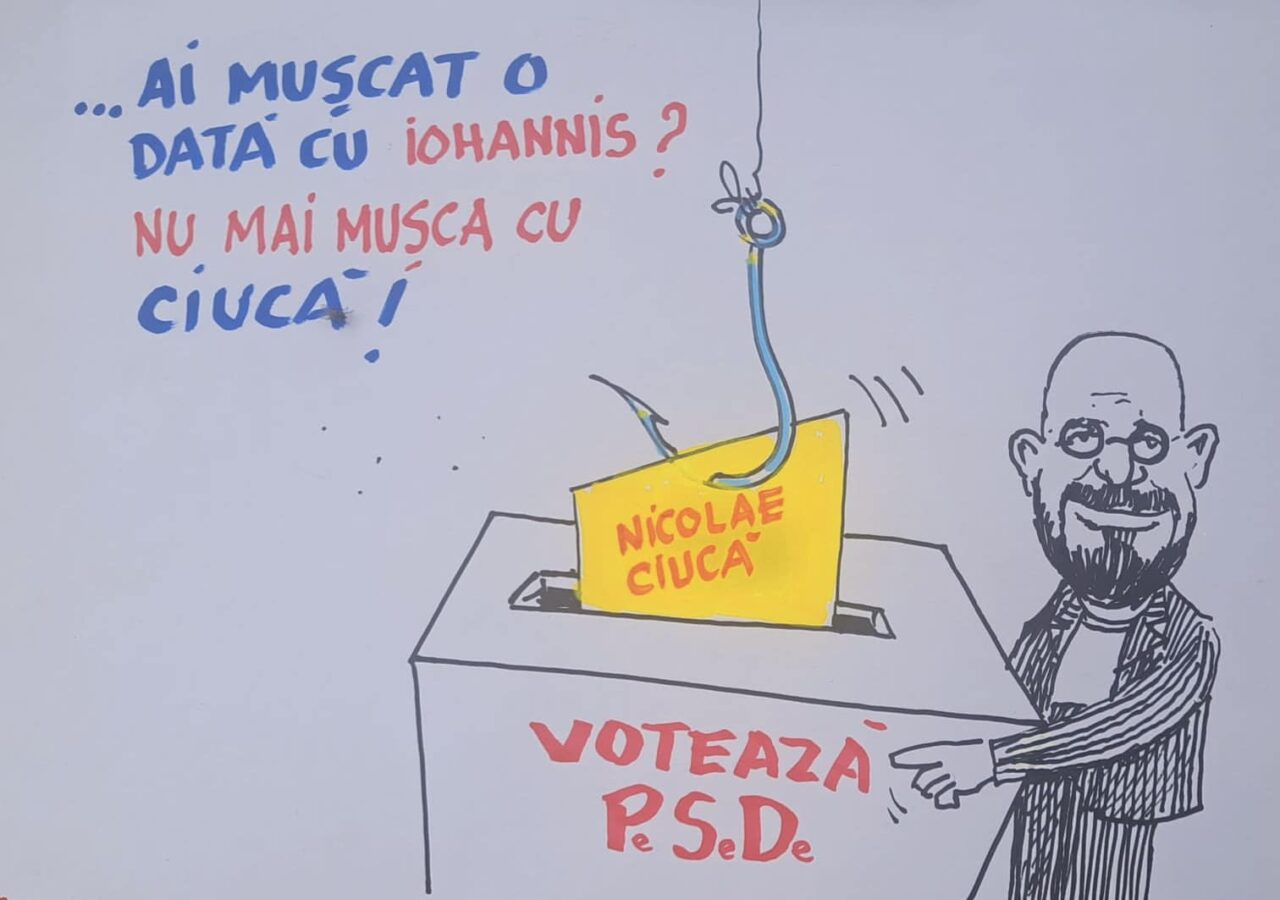 ...Ai MUŞCAT O
DATĂ CU iOHANNiS ?
NU MAi MUŞCA CU
CiUCĂ !
NiCOLAE
CiUCĂ
VOTEAZĂ
PeSeDe